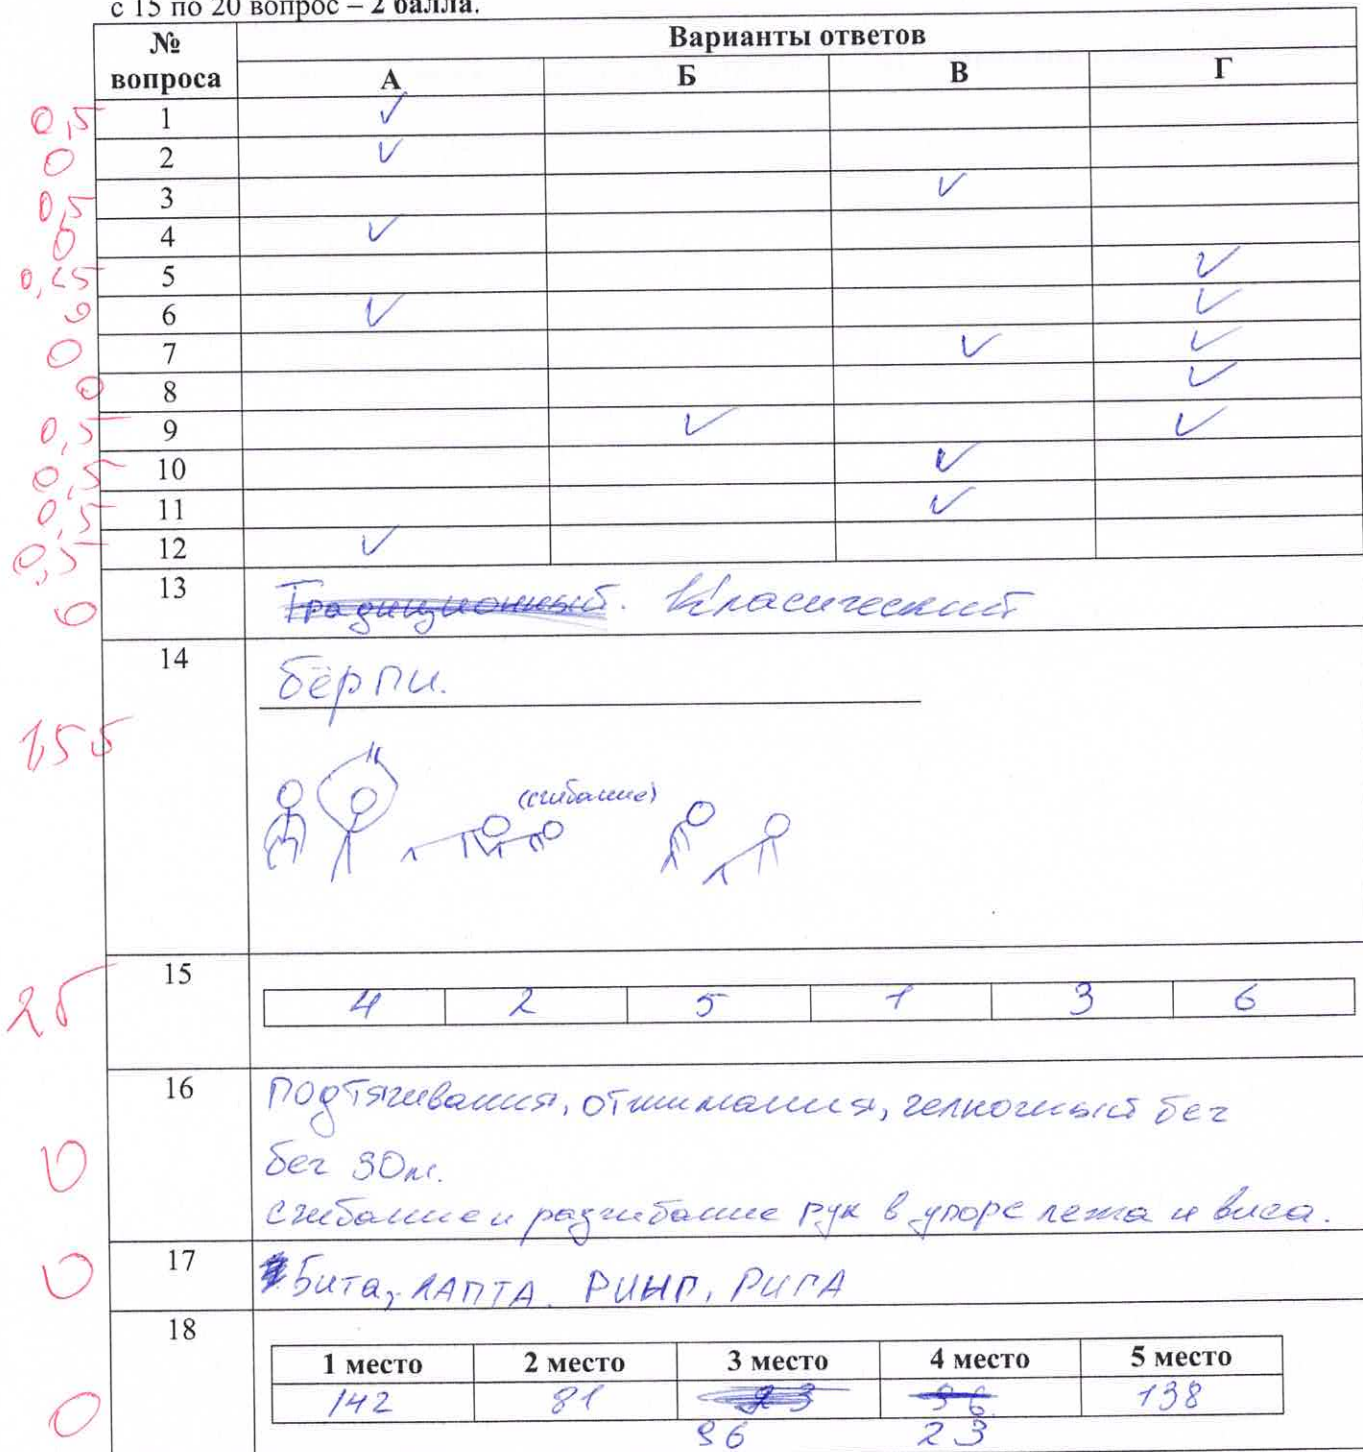 с 15 по 20 вопрос – 2 балла.
№ вопроса Варианты ответов
А Б В Г
0,5 1 ✓
0 2 ✓
0,5 3 ✓
0 4 ✓
0,25 5 ✓
0 6 ✓ ✓
0 7 ✓ ✓
0 8 ✓
0,5 9 ✓ ✓
0,5 10 ✓
0,5 11 ✓
0,5 12 ✓
0 13 Традиционный. Класический
14 бёрпи.
(сгибание)
15
2б 4 2 5 1 3 6
16 Подтягивания, отжимания, челночный бег
0 бег 30м.
сгибание и разгибание рук в упоре лежа и виса.
0 17 Бита, ЛАПТА. РИНГ, РИГА
18
1 место 2 место 3 место 4 место 5 место
0 142 81 23 96 138
96 23